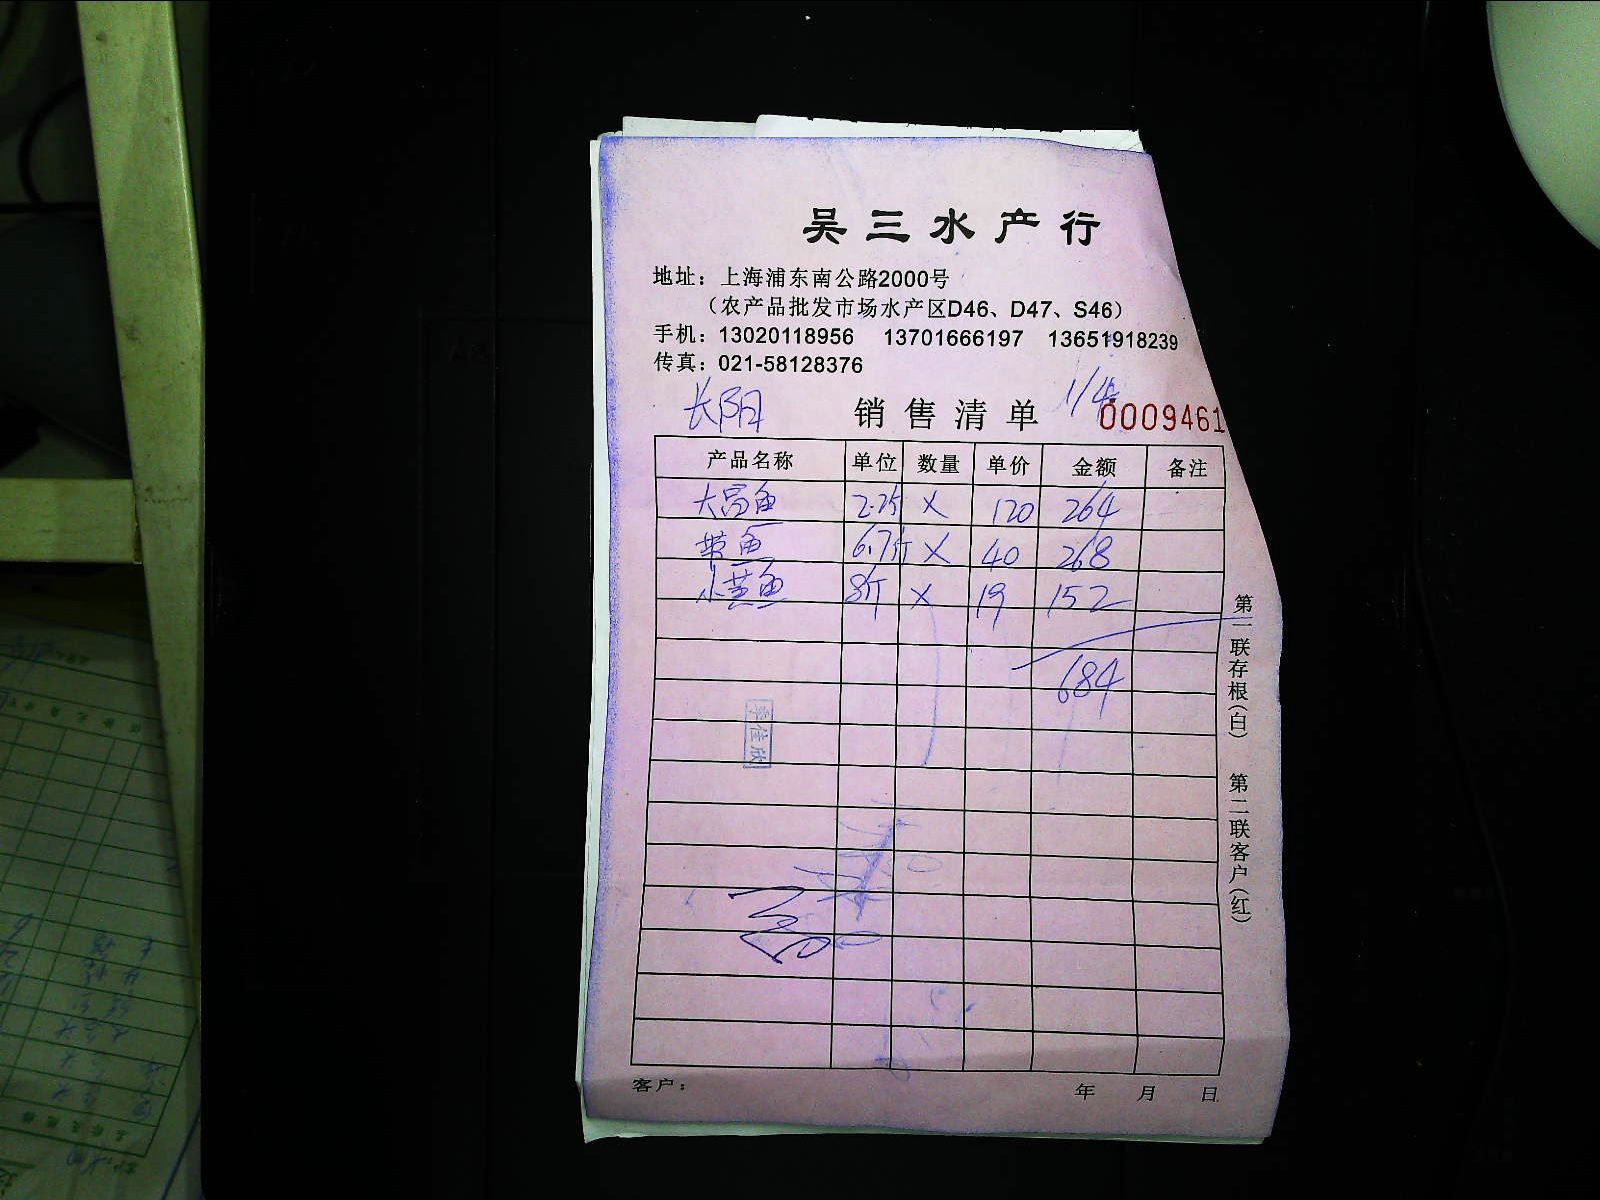 吴三水产行
地址：上海浦东南公路2000号
（农产品批发市场水产区D46、D47、S46）
手机：13020118956 13701666197 13651918239
传真：021-58128376
长阳 销售清单 1/4 0009461
产品名称 单位 数量 单价 金额 备注
大富鱼 2.25 X 120 264
带鱼 6.7斤 X 40 268
小黄鱼 8斤 X 19 152
684
第一联存根（白） 第二联客户（红）
客户： 年 月 日